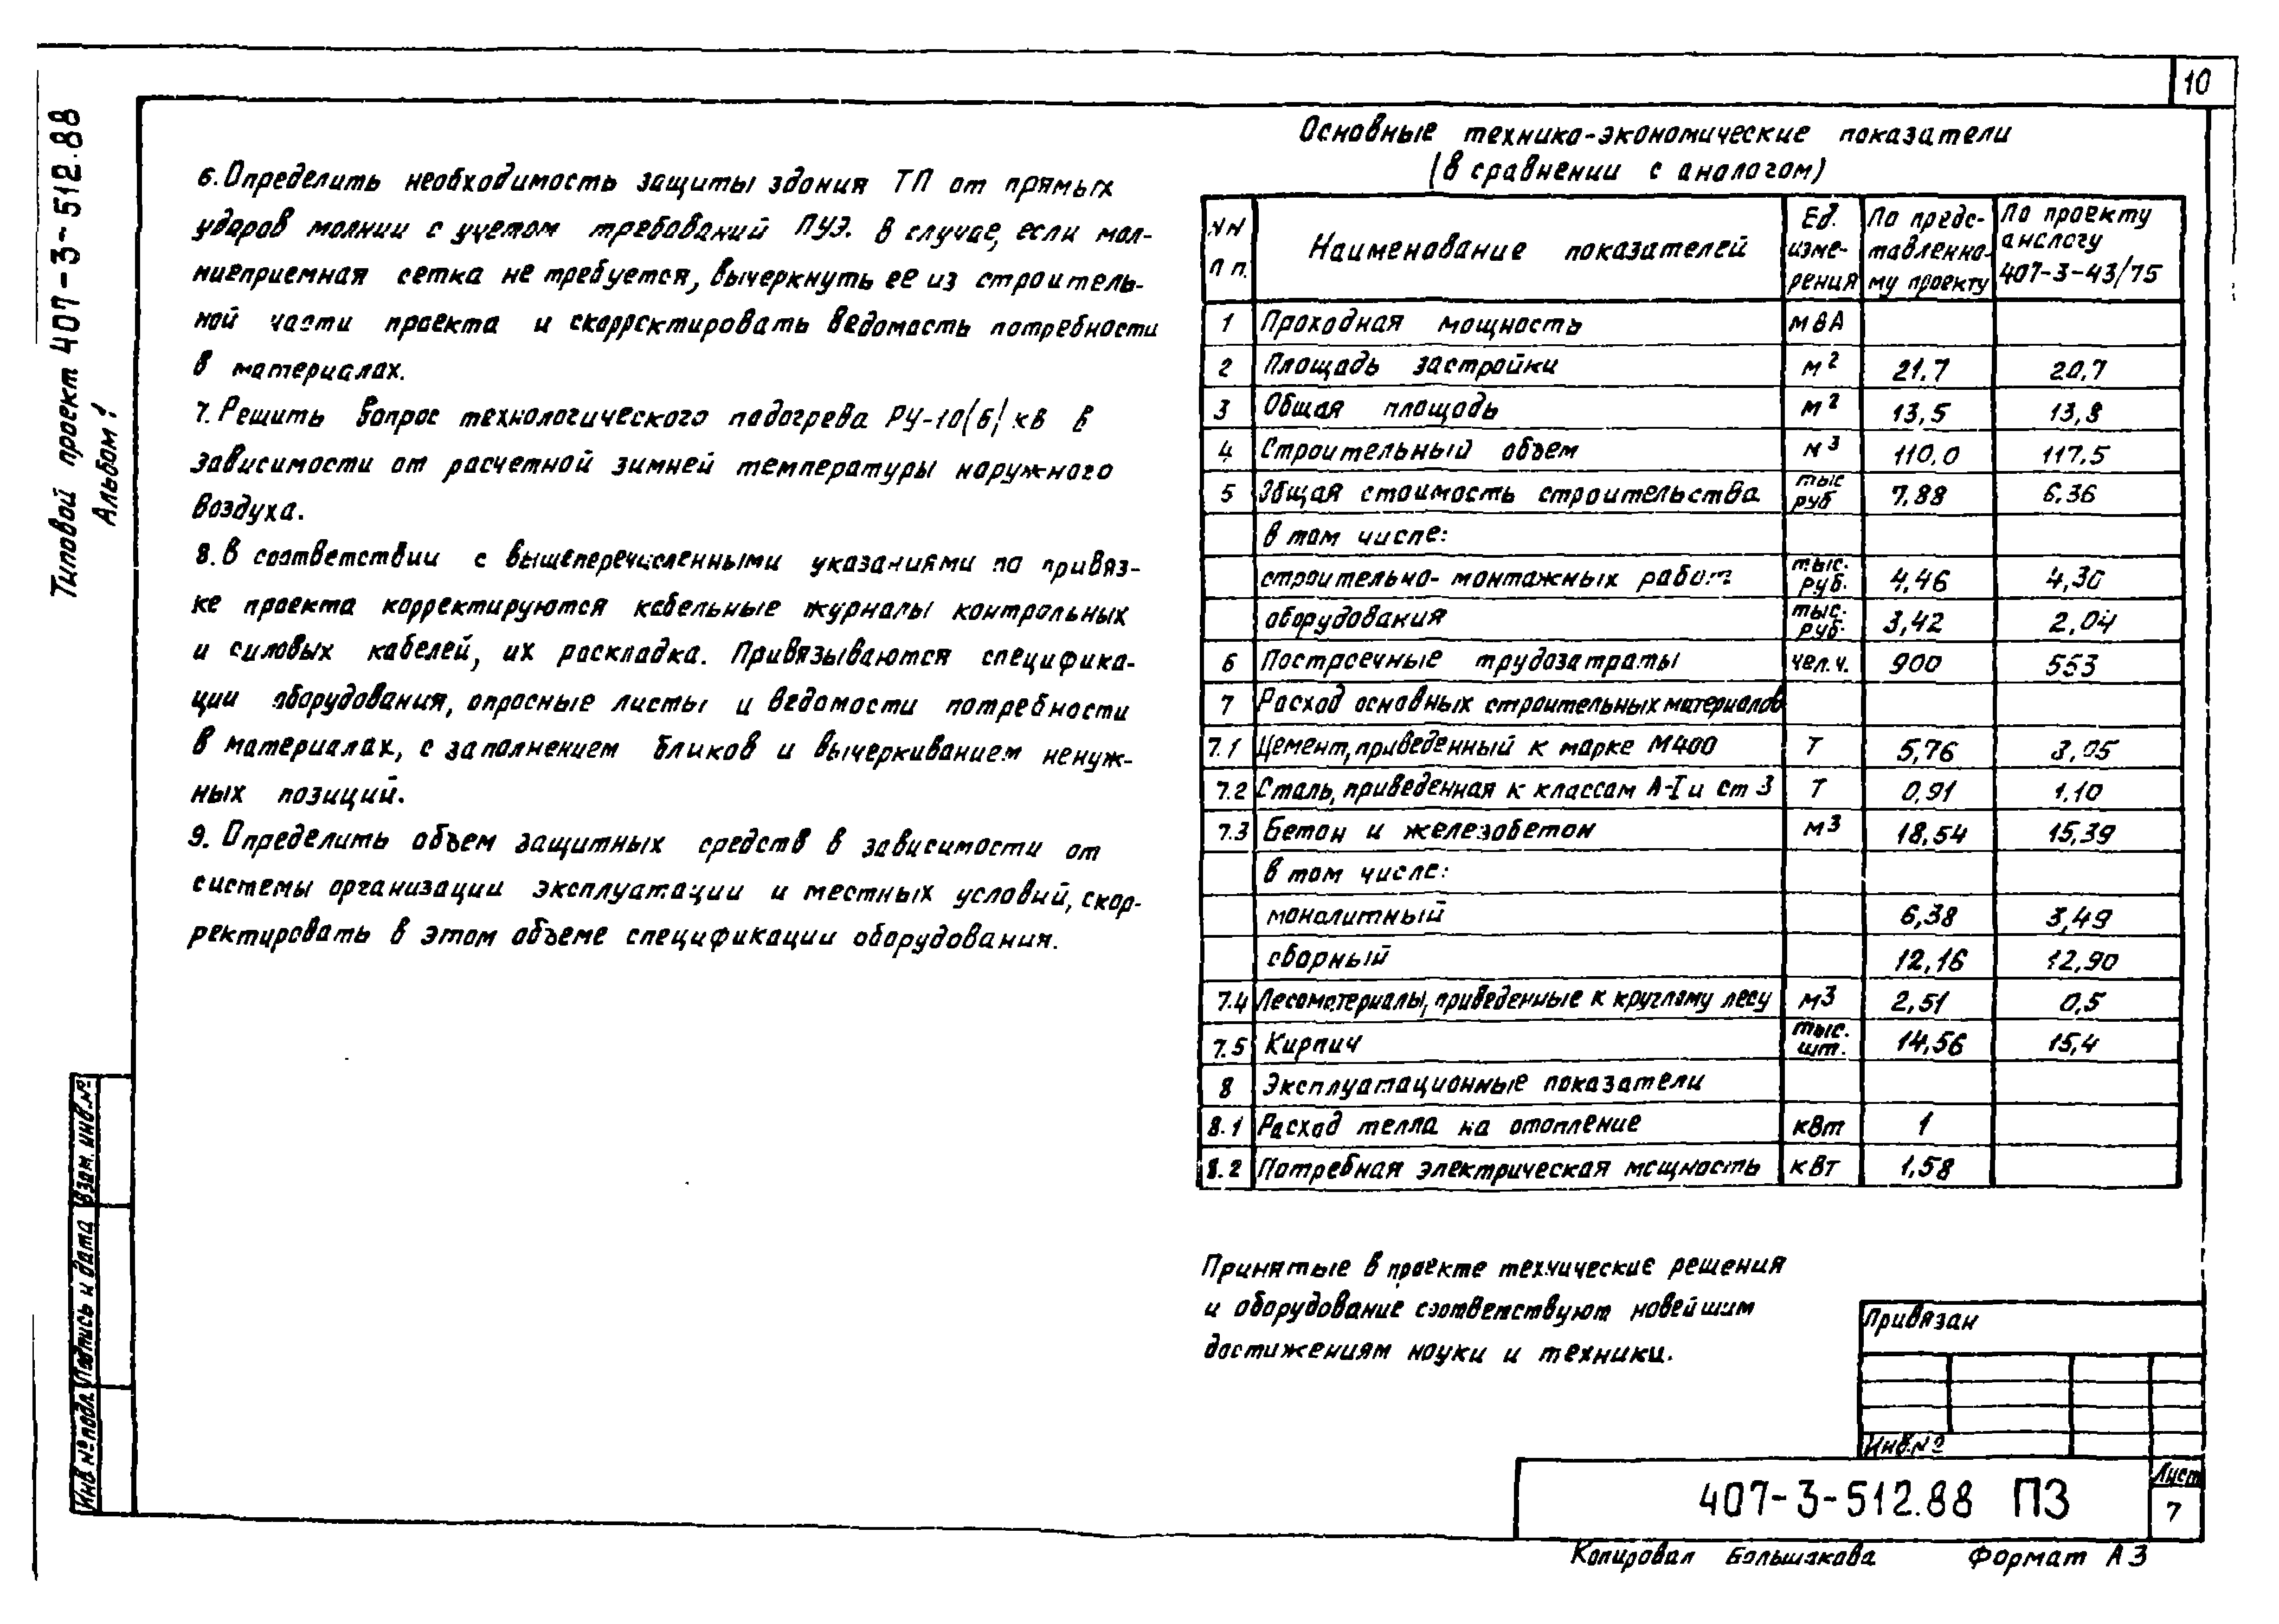 10
Типовой проект 407-3-512.88
Альбом 1
6. Определить необходимость защиты здания ТП от прямых
ударов молнии с учетом требований ПУЭ. В случае, если мол-
ниеприемная сетка не требуется, вычеркнуть ее из строитель-
ной части проекта и скорректировать ведомость потребности
в материалах.
7. Решить вопрос технологического подогрева РУ-10(6) кВ в
зависимости от расчетной зимней температуры наружного
воздуха.
8. В соответствии с вышеперечисленными указаниями по привяз-
ке проекта корректируются кабельные журналы контрольных
и силовых кабелей, их раскладка. Привязываются специфика-
ции оборудования, опросные листы и ведомости потребности
в материалах, с заполнением бликов и вычеркиванием ненуж-
ных позиций.
9. Определить объем защитных средств в зависимости от
системы организации эксплуатации и местных условий, скор-
ректировать в этом объеме спецификации оборудования.
Основные технико-экономические показатели
(в сравнении с аналогом)
NN п п. Наименование показателей Ед. изме- рения По предс- тавленно- му проекту По проекту аналогу 407-3-43/75
1 Проходная мощность мвА
2 Площадь застройки м² 21.7 20,7
3 Общая площадь м² 13,5 13,8
4 Строительный объем м³ 110,0 117,5
5 Общая стоимость строительства тыс руб 7,88 6,36
в том числе:
строительно-монтажных работ тыс. руб. 4,46 4,30
оборудования тыс. руб. 3,42 2,04
6 Построечные трудозатраты чел.ч. 900 553
7 Расход основных строительных материалов
7.1 Цемент, приведенный к марке М400 Т 5,76 3,05
7.2 Сталь, приведенная к классам А-I и Ст 3 Т 0,91 1.10
7.3 Бетон и железобетон м3 18,54 15,39
в том числе:
монолитный 6,38 3,49
сборный 12,16 12,90
7.4 Лесоматериалы, приведенные к круглому лесу м3 2,51 0,5
7.5 Кирпич тыс. шт. 14,56 15,4
8 Эксплуатационные показатели
8.1 Расход тепла на отопление кВт 1
8.2 Потребная электрическая мощность кВт 1,58
Принятые в проекте технические решения
и оборудование соответствуют новейшим
достижениям науки и техники.
Привязан
Инв.№
407-3-512.88 ПЗ
Лист
7
Копировал Большакова Формат А3
Взам. инв.№
Подпись и дата
Инв № подл.